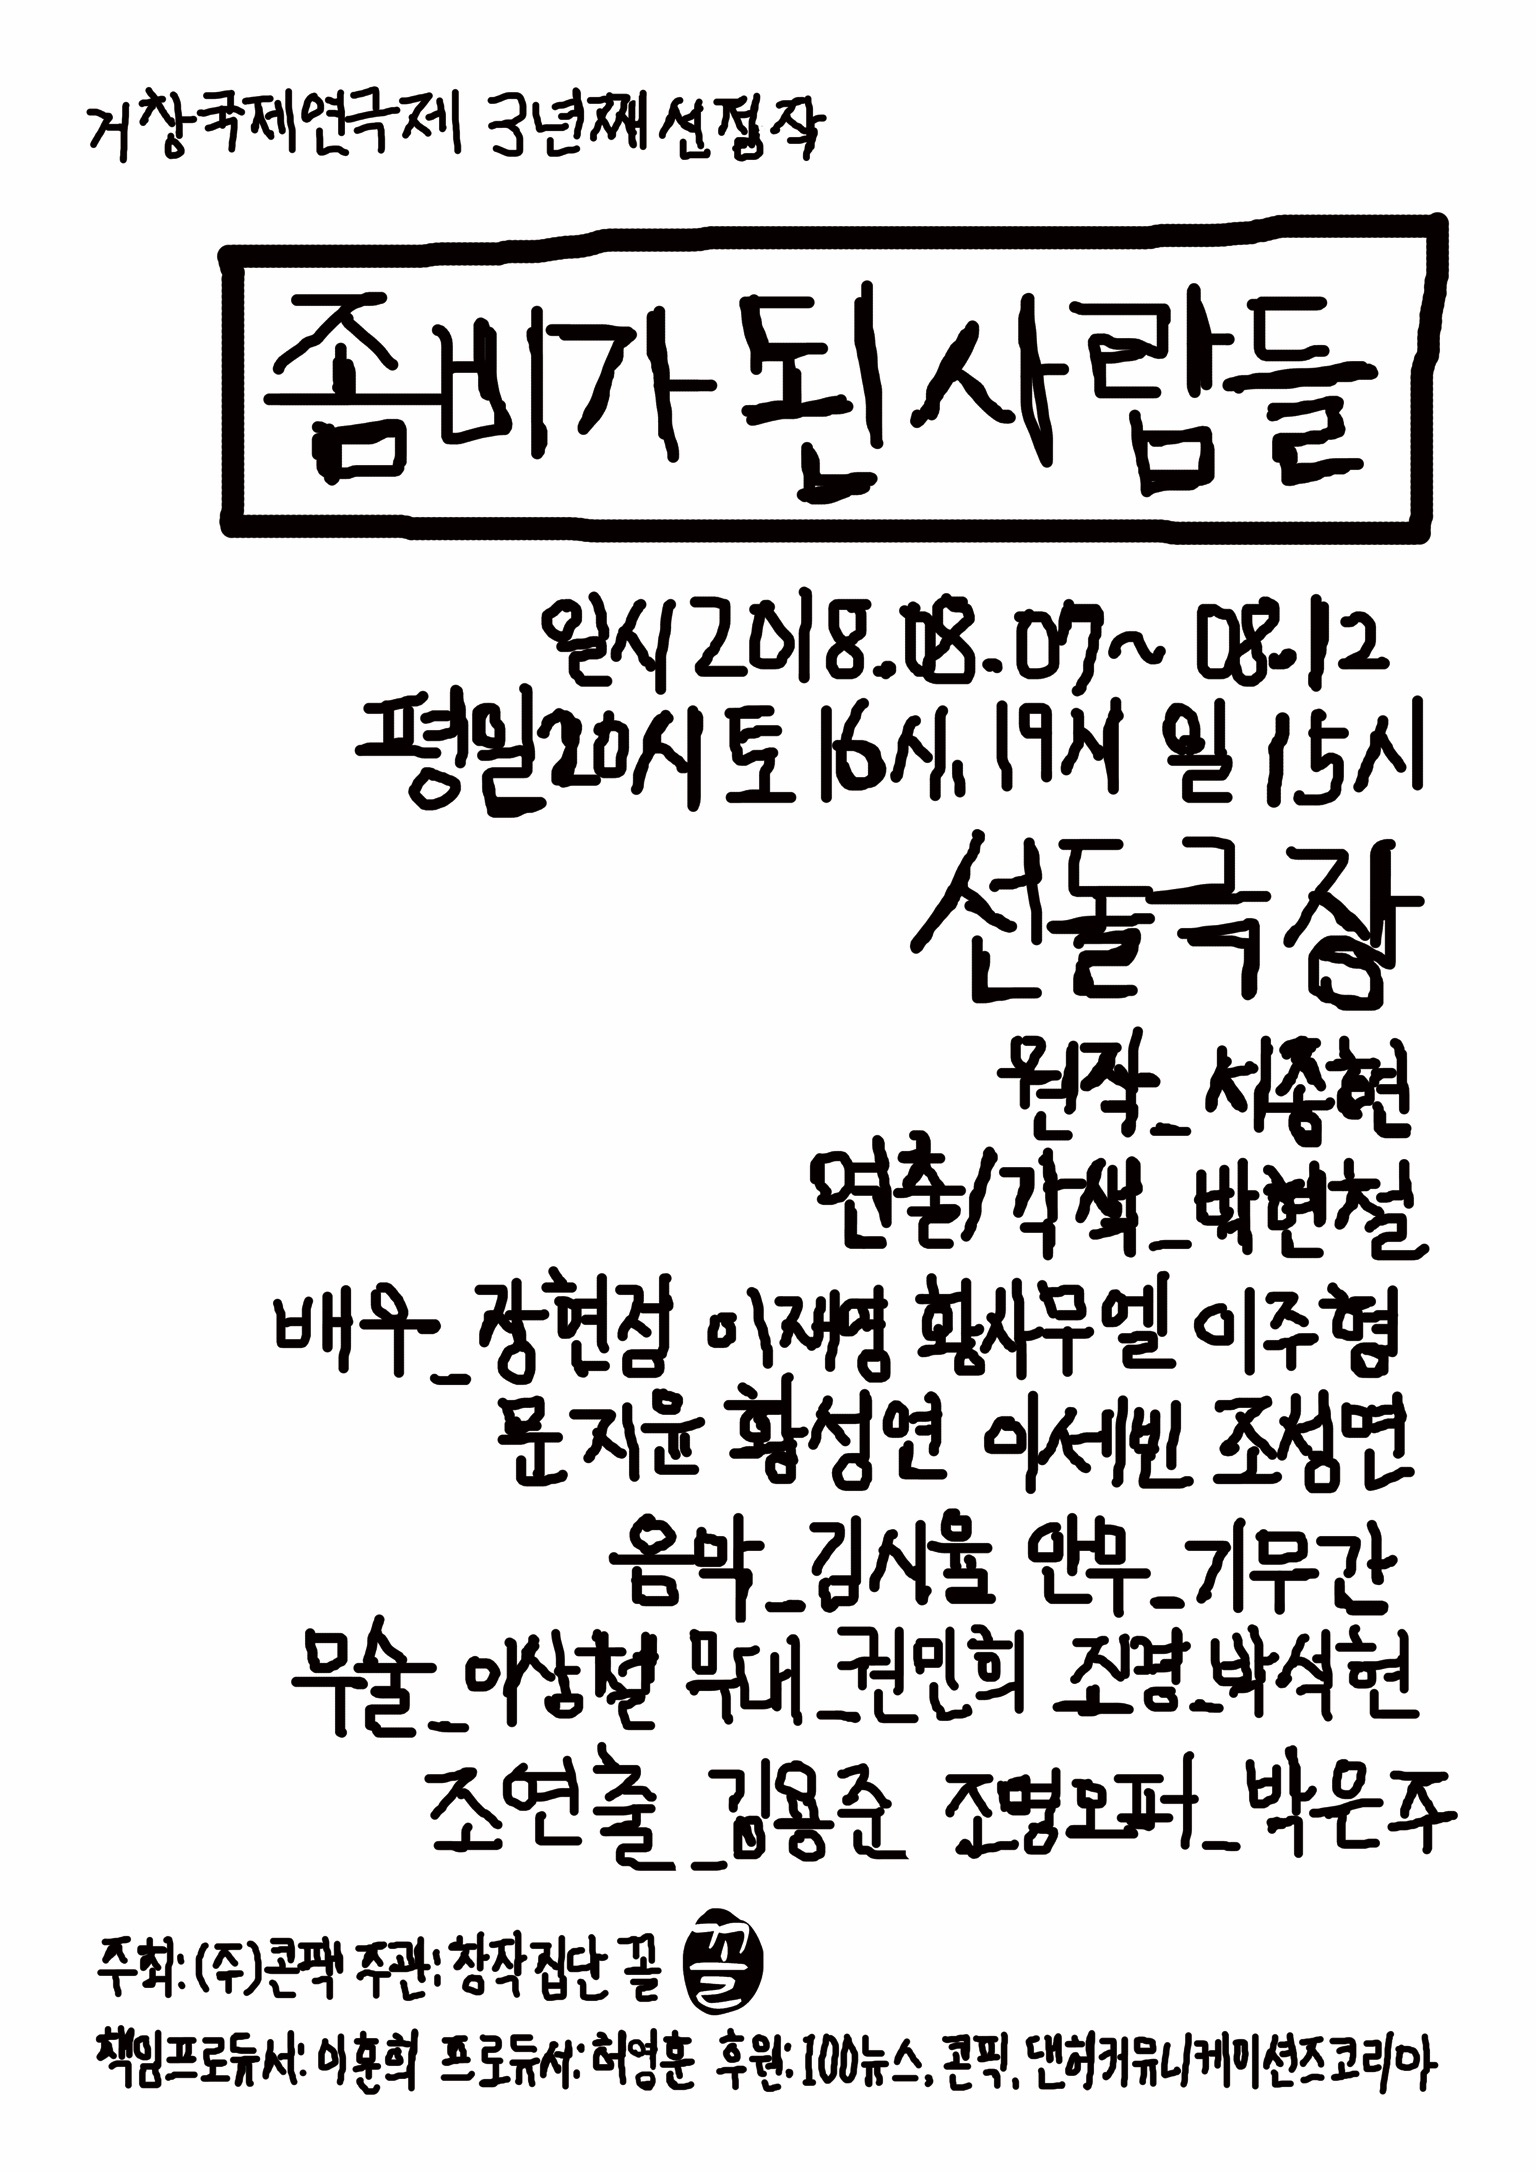 거창국제연극제 3년째 선정작
좀비가 된 사람들
일시 2018.08.07~08.12
평일20시 토 16시, 19시 일 15시
선돌극장
원작_서종현
연출/각색_박현철
배우_장현점 이재영 황사무엘 이주형
문지윤 황성연 이세빈 조성면
음악_김시율 안무_기무간
무술_이상철 무대_권민희 조경_박석현
조연출_김용준 조명오퍼_박은주
주최:(주)콘팩 주관:창작집단 꼴 꼴
책임프로듀서:이훈희 프로듀서:허영훈 후원:100뉴스, 콘픽, 댄허커뮤니케이션즈코리아